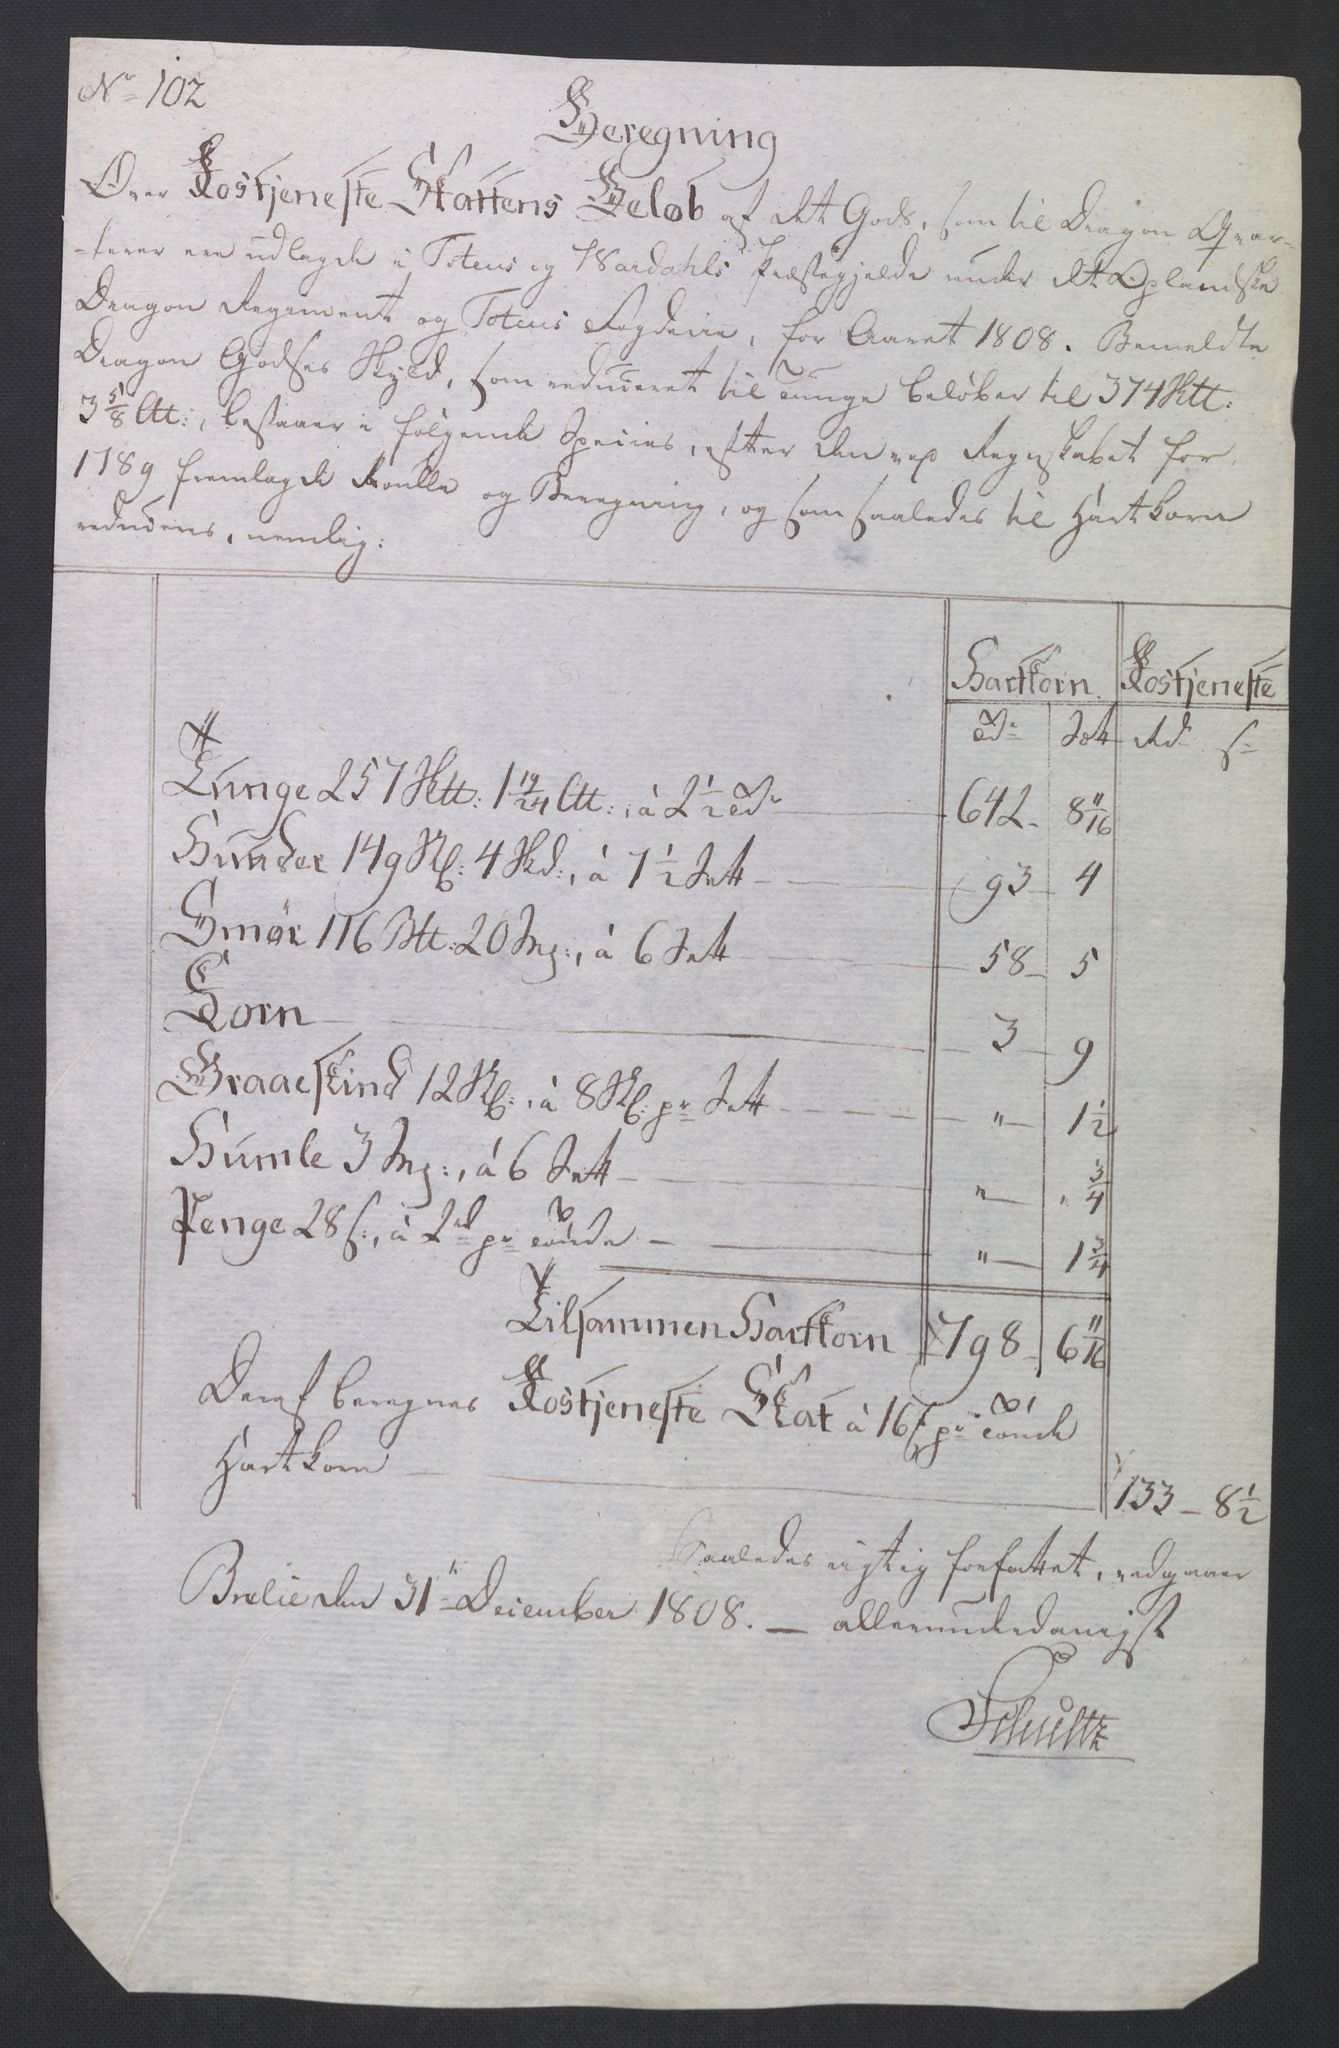 No 102
Beregning
Over Rostjeneste Skattens Beløb af det Gods, som til Dragon Qvar-
-terer ere udlagde i Totens og Wardahls Præstegjelde under det Oplandske
Dragon Regiment og Totens Fogderie, for Aaret 1808. Bemeldte
Dragon Godses Skyld, som reduceret til Tunge beløber til 374 Htt:
3 5/8 Ltt:, bestaaer i følgende Species, efter den ved Regnskabet for
1789 fremlagde Roulle og Beregning, og som saaledes til Hartkorn
reduceres, nemlig:
Hartkorn Rostjeneste
Tdr Sett Rd s
Tunge 257 Htt: 1 19/24 Ltt:, à 2 1/2 Tdr 642 8 11/16
Hunder 149 Sk: 4 Skd:, à 7 1/2 Sett 93 4
Smør 116 Btt: 20 Mg:, à 6 Sett 58 5
Korn 3 9
Graaeskind 12 Sk:, à 8 Sk: pr Sett " 1 1/2
Humle 3 Mg:, à 6 Sett " " 3/4
Penge 28 s:, à 2rd pr Tønde " 1 3/4
Tilsammen Hartkorn 798 6 11/16
Deraf beregnes Rostjeneste Skat à 16 s pr Tønde
Hartkorn 133 - 8 1/2
Saaledes rigtig forfattet, vedgaaer
Brelie den 31te December 1808. — allerunderdanigst
Schultz